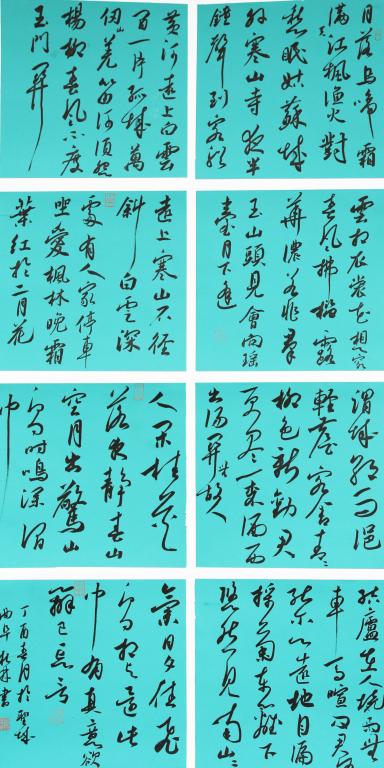 月落烏啼霜
滿天江楓漁火對
愁眠姑蘇城
外寒山寺夜半
鍾聲到客船
黄河遠上白雲
間一片孤城萬
仞山羌笛何須怨
楊柳春風不度
玉門關
雲想衣裳花想容
春風拂檻露
華濃若非羣
玉山頭見會向瑶
臺月下逢
遠上寒山石徑
斜白雲深
處有人家停車
坐愛楓林晚霜
葉紅於二月花
渭城朝雨浥
輕塵客舍青々
柳色新勸君
更盡一杯酒西
出陽關無故人
人閒桂花
落夜静春山
空月出驚山
鳥時鳴深澗
中
結廬在人境而無
車馬喧問君
能尔心遠地自偏
採菊東籬下
悠然見南山山
氣日夕佳飛
鳥相與還此
中有真意欲
辯已忘言
丁酉春月於聖城
曲阜
書